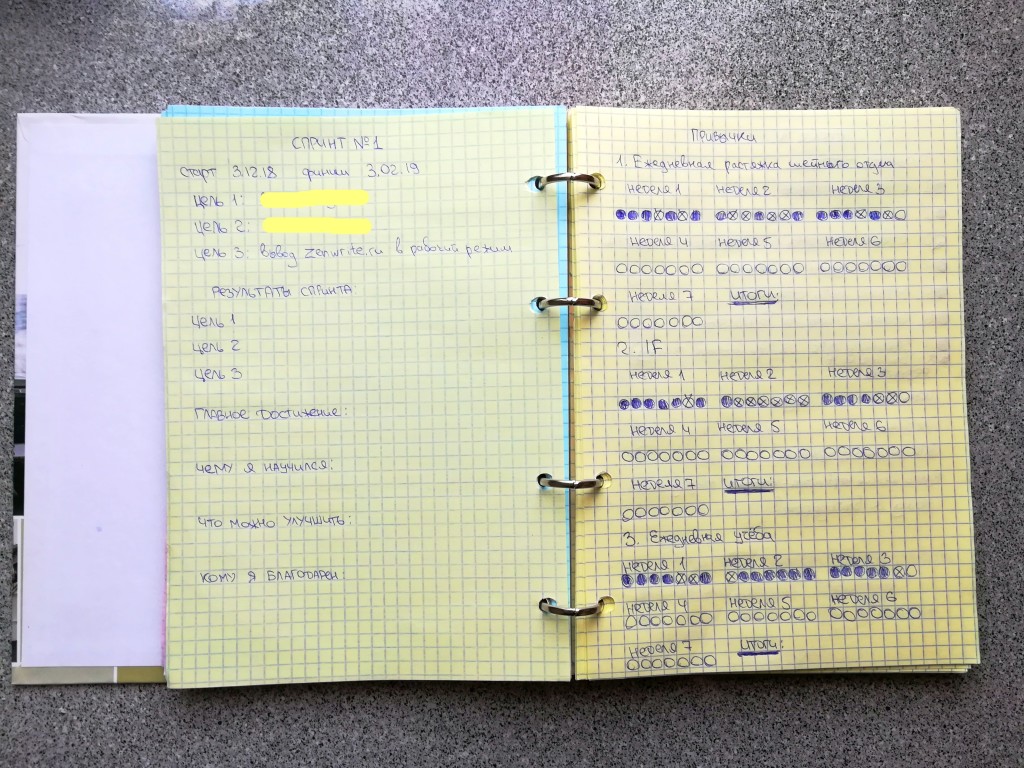 СПРИНТ №1
старт 3.12.18 финиш 3.02.19
цель 1:
цель 2:
цель 3: вывод zenwrite.ru в рабочий режим
РЕЗУЛЬТАТЫ СПРИНТА
цель 1
цель 2
цель 3
ГЛАВНОЕ ДОСТИЖЕНИЕ:
ЧЕМУ Я НАУЧИЛСЯ:
ЧТО МОЖНО УЛУЧШИТЬ:
КОМУ Я БЛАГОДАРЕН:
Привычки
1. Ежедневная растяжка шейного отдела
неделя 1 неделя 2 неделя 3
неделя 4 неделя 5 неделя 6
неделя 7 итоги:
2. IF
неделя 1 неделя 2 неделя 3
неделя 4 неделя 5 неделя 6
неделя 7 итоги:
3. Ежедневная учёба
неделя 1 неделя 2 неделя 3
неделя 4 неделя 5 неделя 6
неделя 7 итоги: